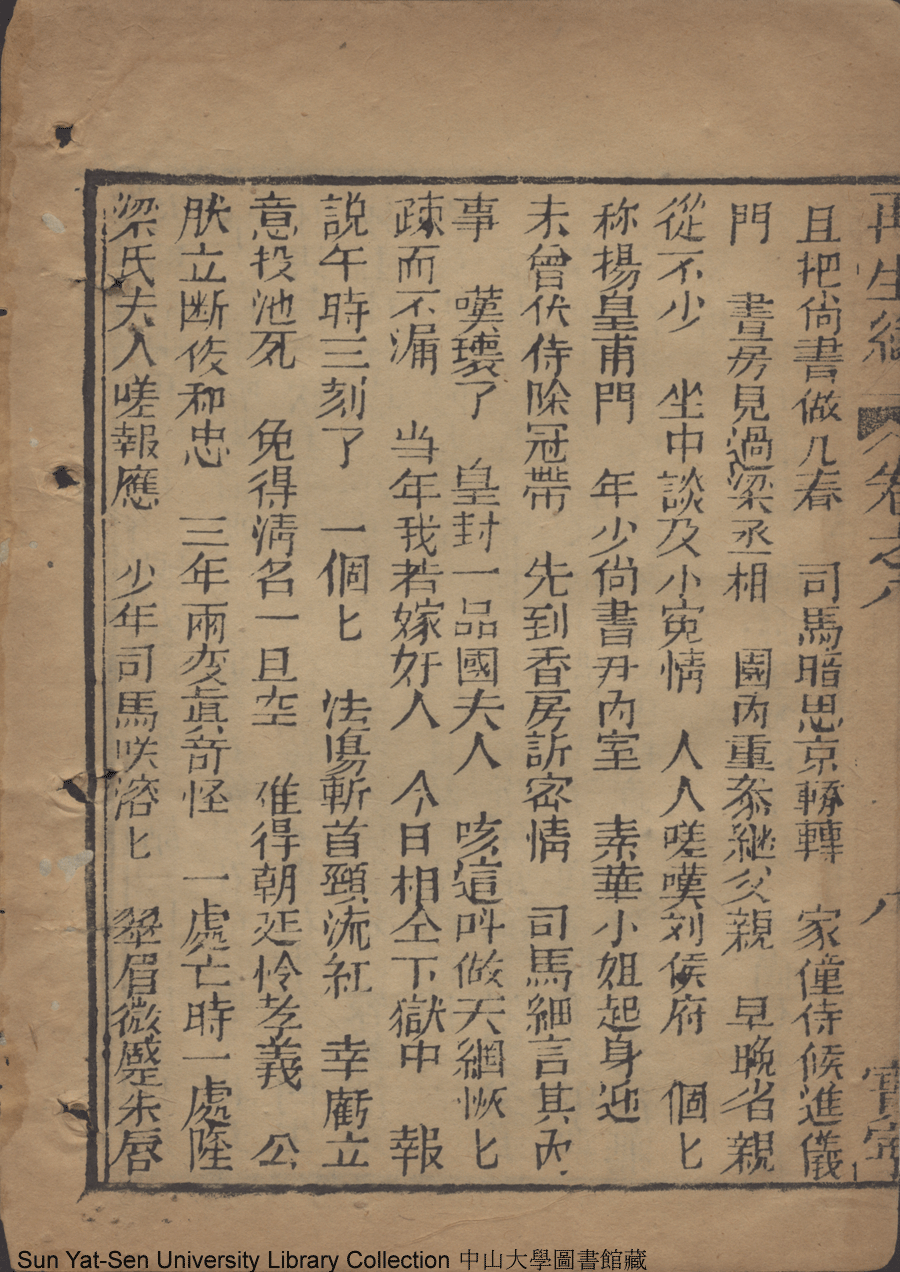 再生緣 卷之八 八
且把尚書做几春 司馬暗思京輛轉 家僮侍候進儀
門 晝房見過梁丞相 園內重叅継父親 早晚省親
從不少 坐中談及小寃情 人人嗟嘆刘侯府 個匕
称揚皇甫門 年少尚書升內室 素華小姐起身迎
未曾伏侍除冠帶 先到香房訴密情 司馬細言其內
事 嘆壞了 皇封一品國夫人 咳這呌做天網恢匕
疎而不漏 当年我若嫁奸人 今日相仝下獄中 報
說午時三刻了 一個匕 法傷斬首頸流紅 幸虧立
意投池死 免得清名一旦空 惟得朝廷怜孝義 公
肰立断俊和忠 三年兩変眞竒怪 一處亡時一處隆
梁氏夫人嗟報應 少年司馬咲溶匕 翠眉微蹙朱唇
Sun Yat-Sen University Library Collection 中山大學圖書館藏